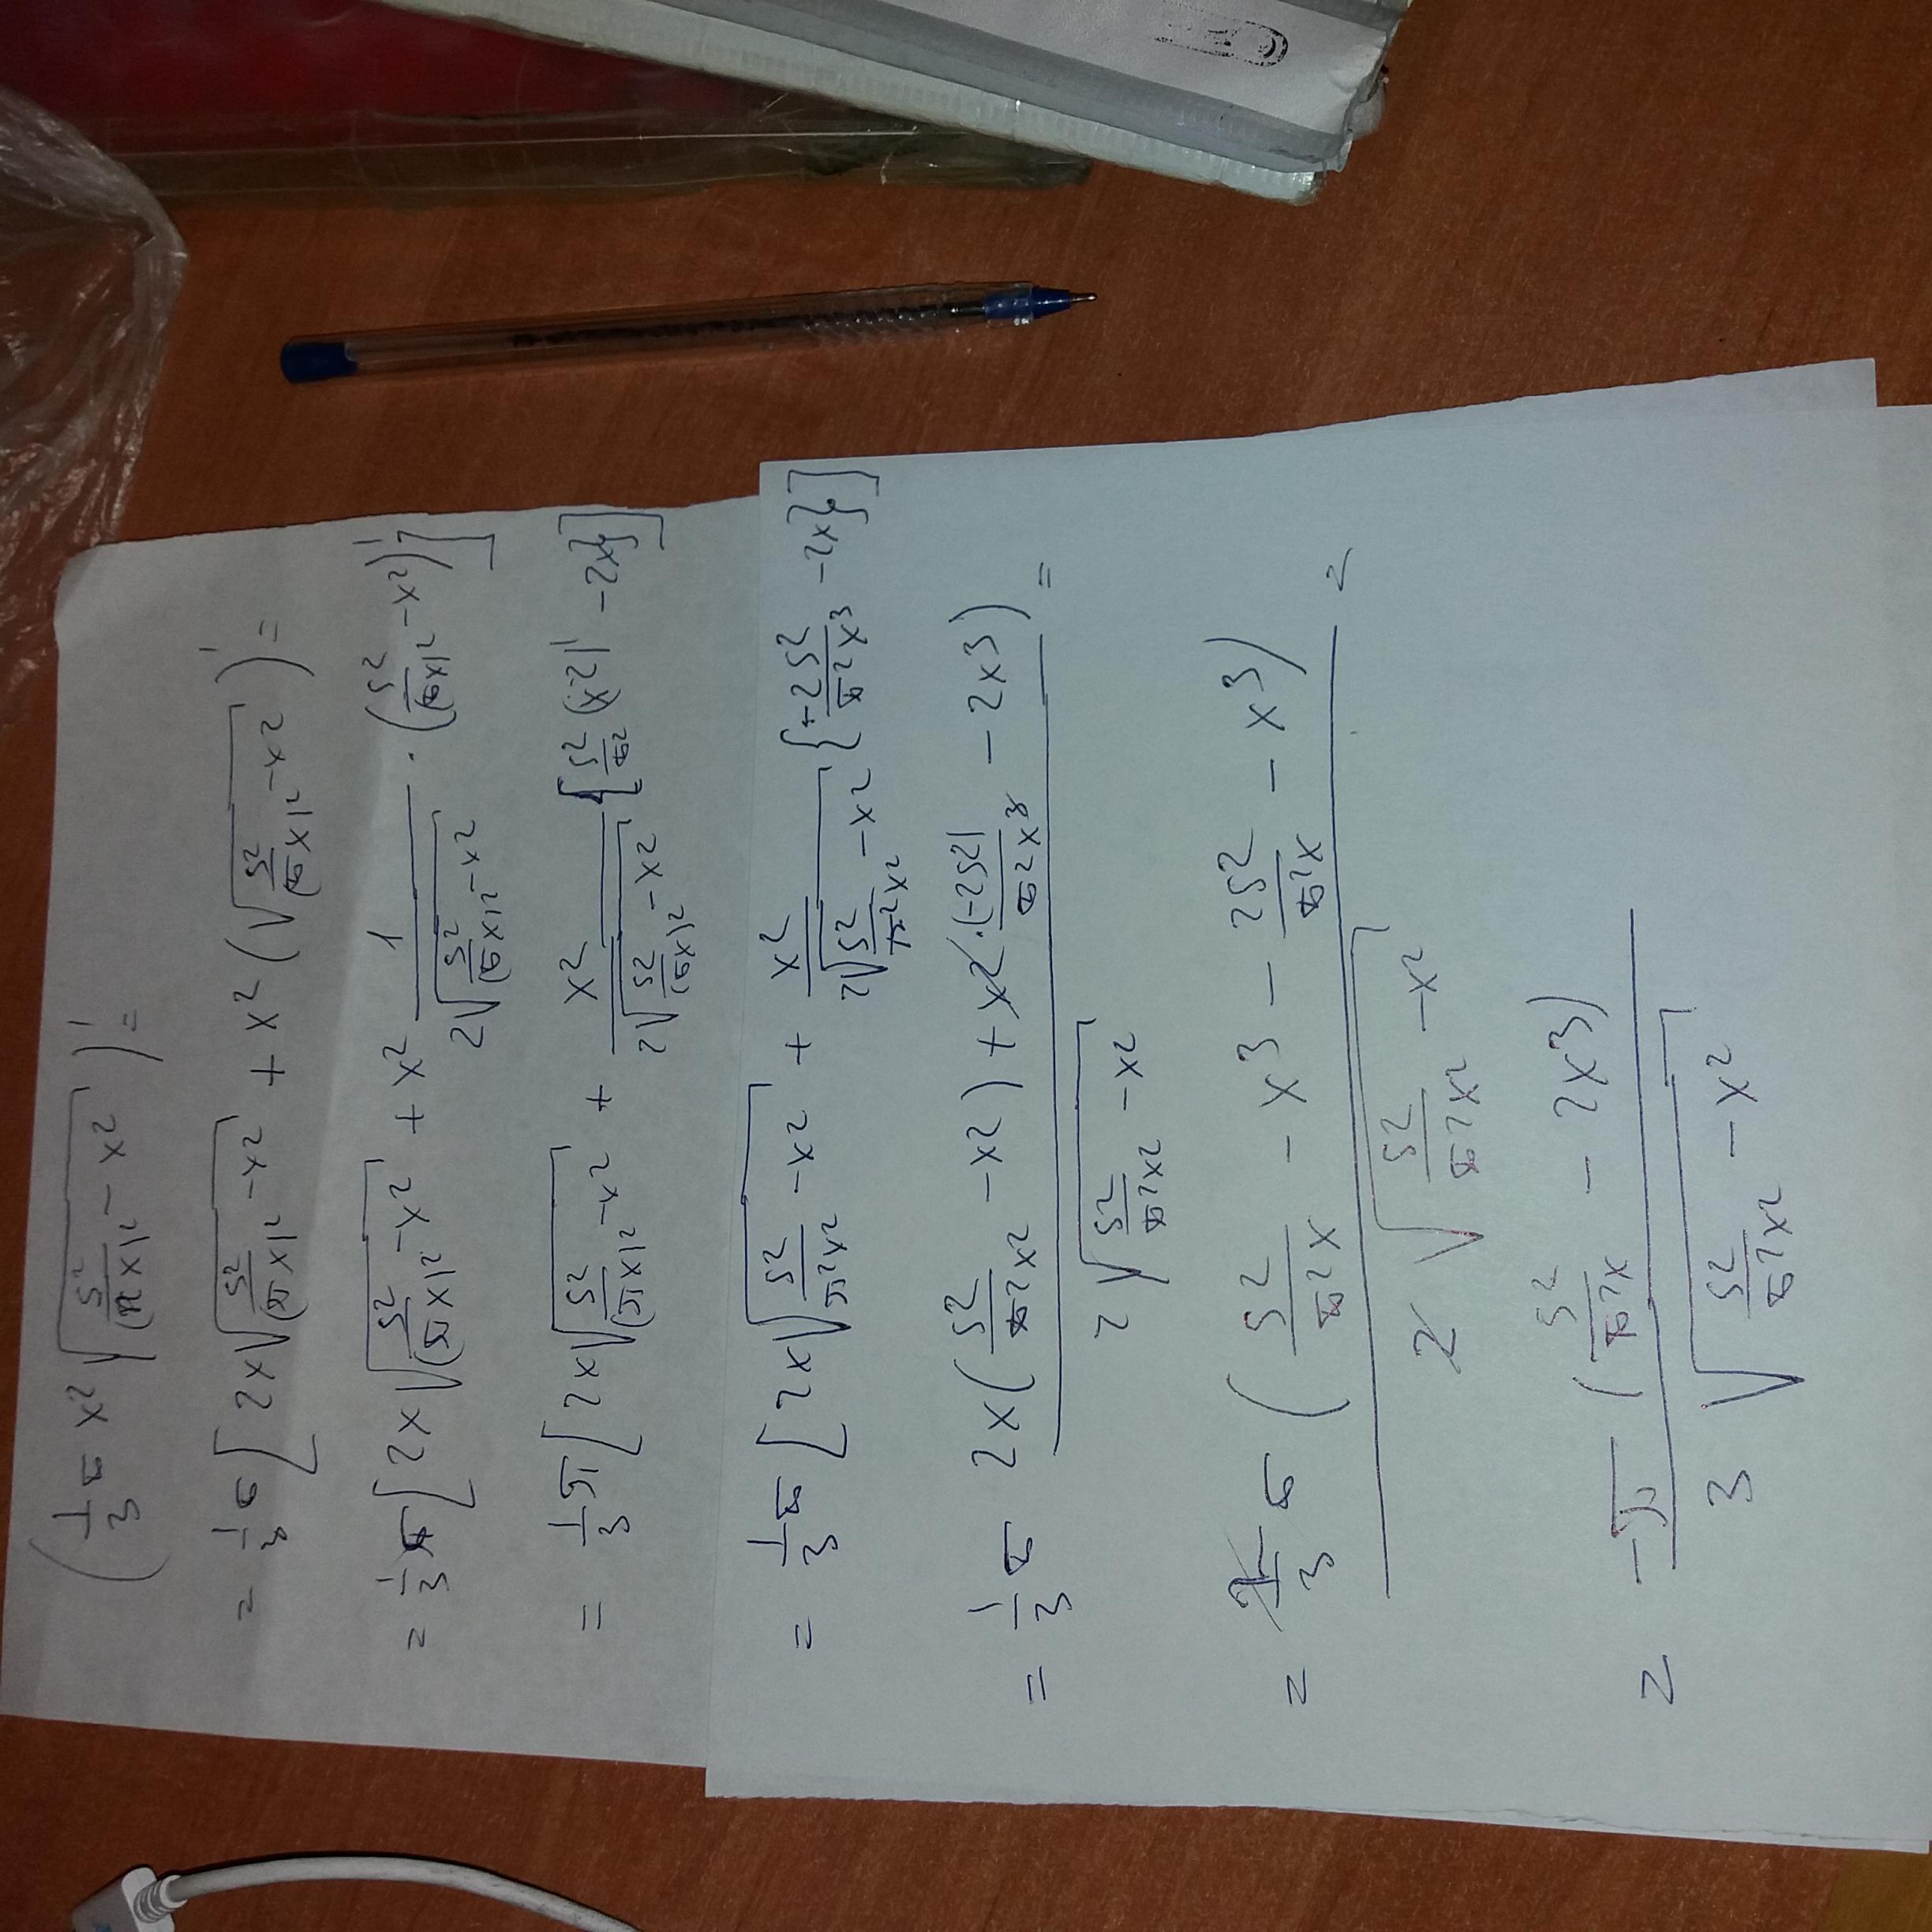 (1/3 π x² √(S²/(πx)² − x²))' =
= 1/3 π [2x √(S²/(πx)² − x²) + x² (√(S²/(πx)² − x²))' =
= 1/3 π [2x √(S²/(πx)² − x²) + x² 1/(2√(S²/(πx)² − x²)) · (S²/(πx)² − x²)']
= 1/3 π [2x √(S²/(πx)² − x²) + x²/(2√(S²/(πx)² − x²)) {S²/π² (x⁻²)' − 2x}]
= 1/3 π [2x √(S²/(π²x²) − x²) + x²/(2√(S²/(π²x²) − x²)) {+ −2S²/(π²x³) − 2x}]
= 1/3 π (2x(S²/(π²x²) − x²) + x² · (−2S²)/(π²x³) − 2x³)/(2√(S²/(π²x²) − x²)) =
= 2/3 π (S²/(π²x) − x³ − 2S²/(π²x) − x³)/(2√(S²/(π²x²) − x²)) =
= −π (S²/(π²x) − 2x³)/(3√(S²/(π²x²) − x²))